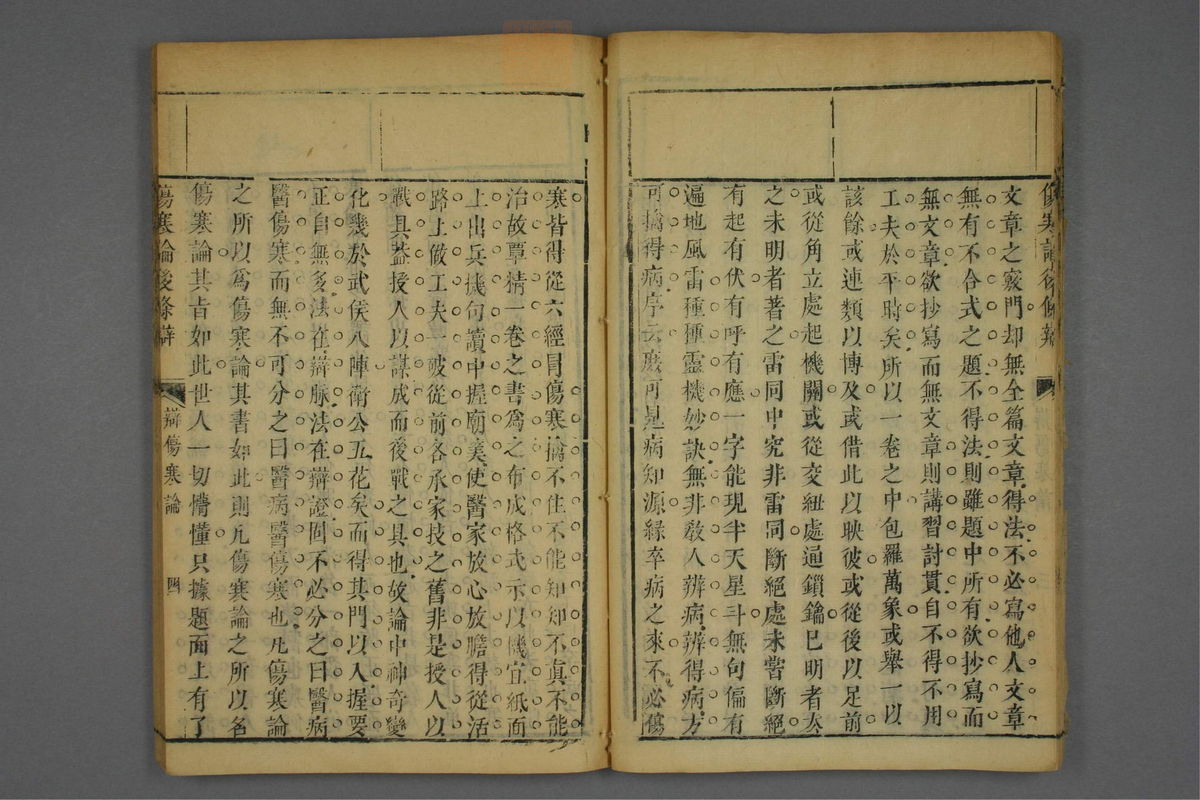 傷寒論後條辨
文章之竅門却無全篇文章得法不必寫他人文章
無有不合式之題不得法則雖題中所有欲抄寫而
無文章欲抄寫而無文章則講習討貫自不得不用
工夫於平時矣所以一卷之中包羅萬象或舉一以
該餘或連類以博及或借此以映彼或從後以足前
或從角立處起機關或從交紐處通鎖鑰巳明者灰
之未明者著之雷同中究非雷同斷絕處未嘗斷絕
有起有伏有呼有應一字能現半天星斗無句偏有
遍地風雷種種靈機妙訣無非教人辨病辨得病方
可擒得病序云庶可見病知源緣卒病之來不必傷
寒皆得從六經冒傷寒擒不住不能知知不真不能
治故覃精一卷之書爲之布成格式示以機宜紙面
上出兵機句讀中握廟筭使醫家放心放膽得從活
路上做工夫一破從前各承家技之舊非是授人以
戰具葢授人以謀成而後戰之具也故論中神奇變
化幾於武侯八陣衛公五花矣而得其門以入握要
正自無多法在辯脉法在辯證固不必分之曰醫病
醫傷寒而無不可分之曰醫病醫傷寒也凡傷寒論
之所以爲傷寒論其書如此則凡傷寒論之所以名
傷寒論其旨如此世人一切懵懂只據題面上有了
傷寒論後條辯 辯傷寒論 四